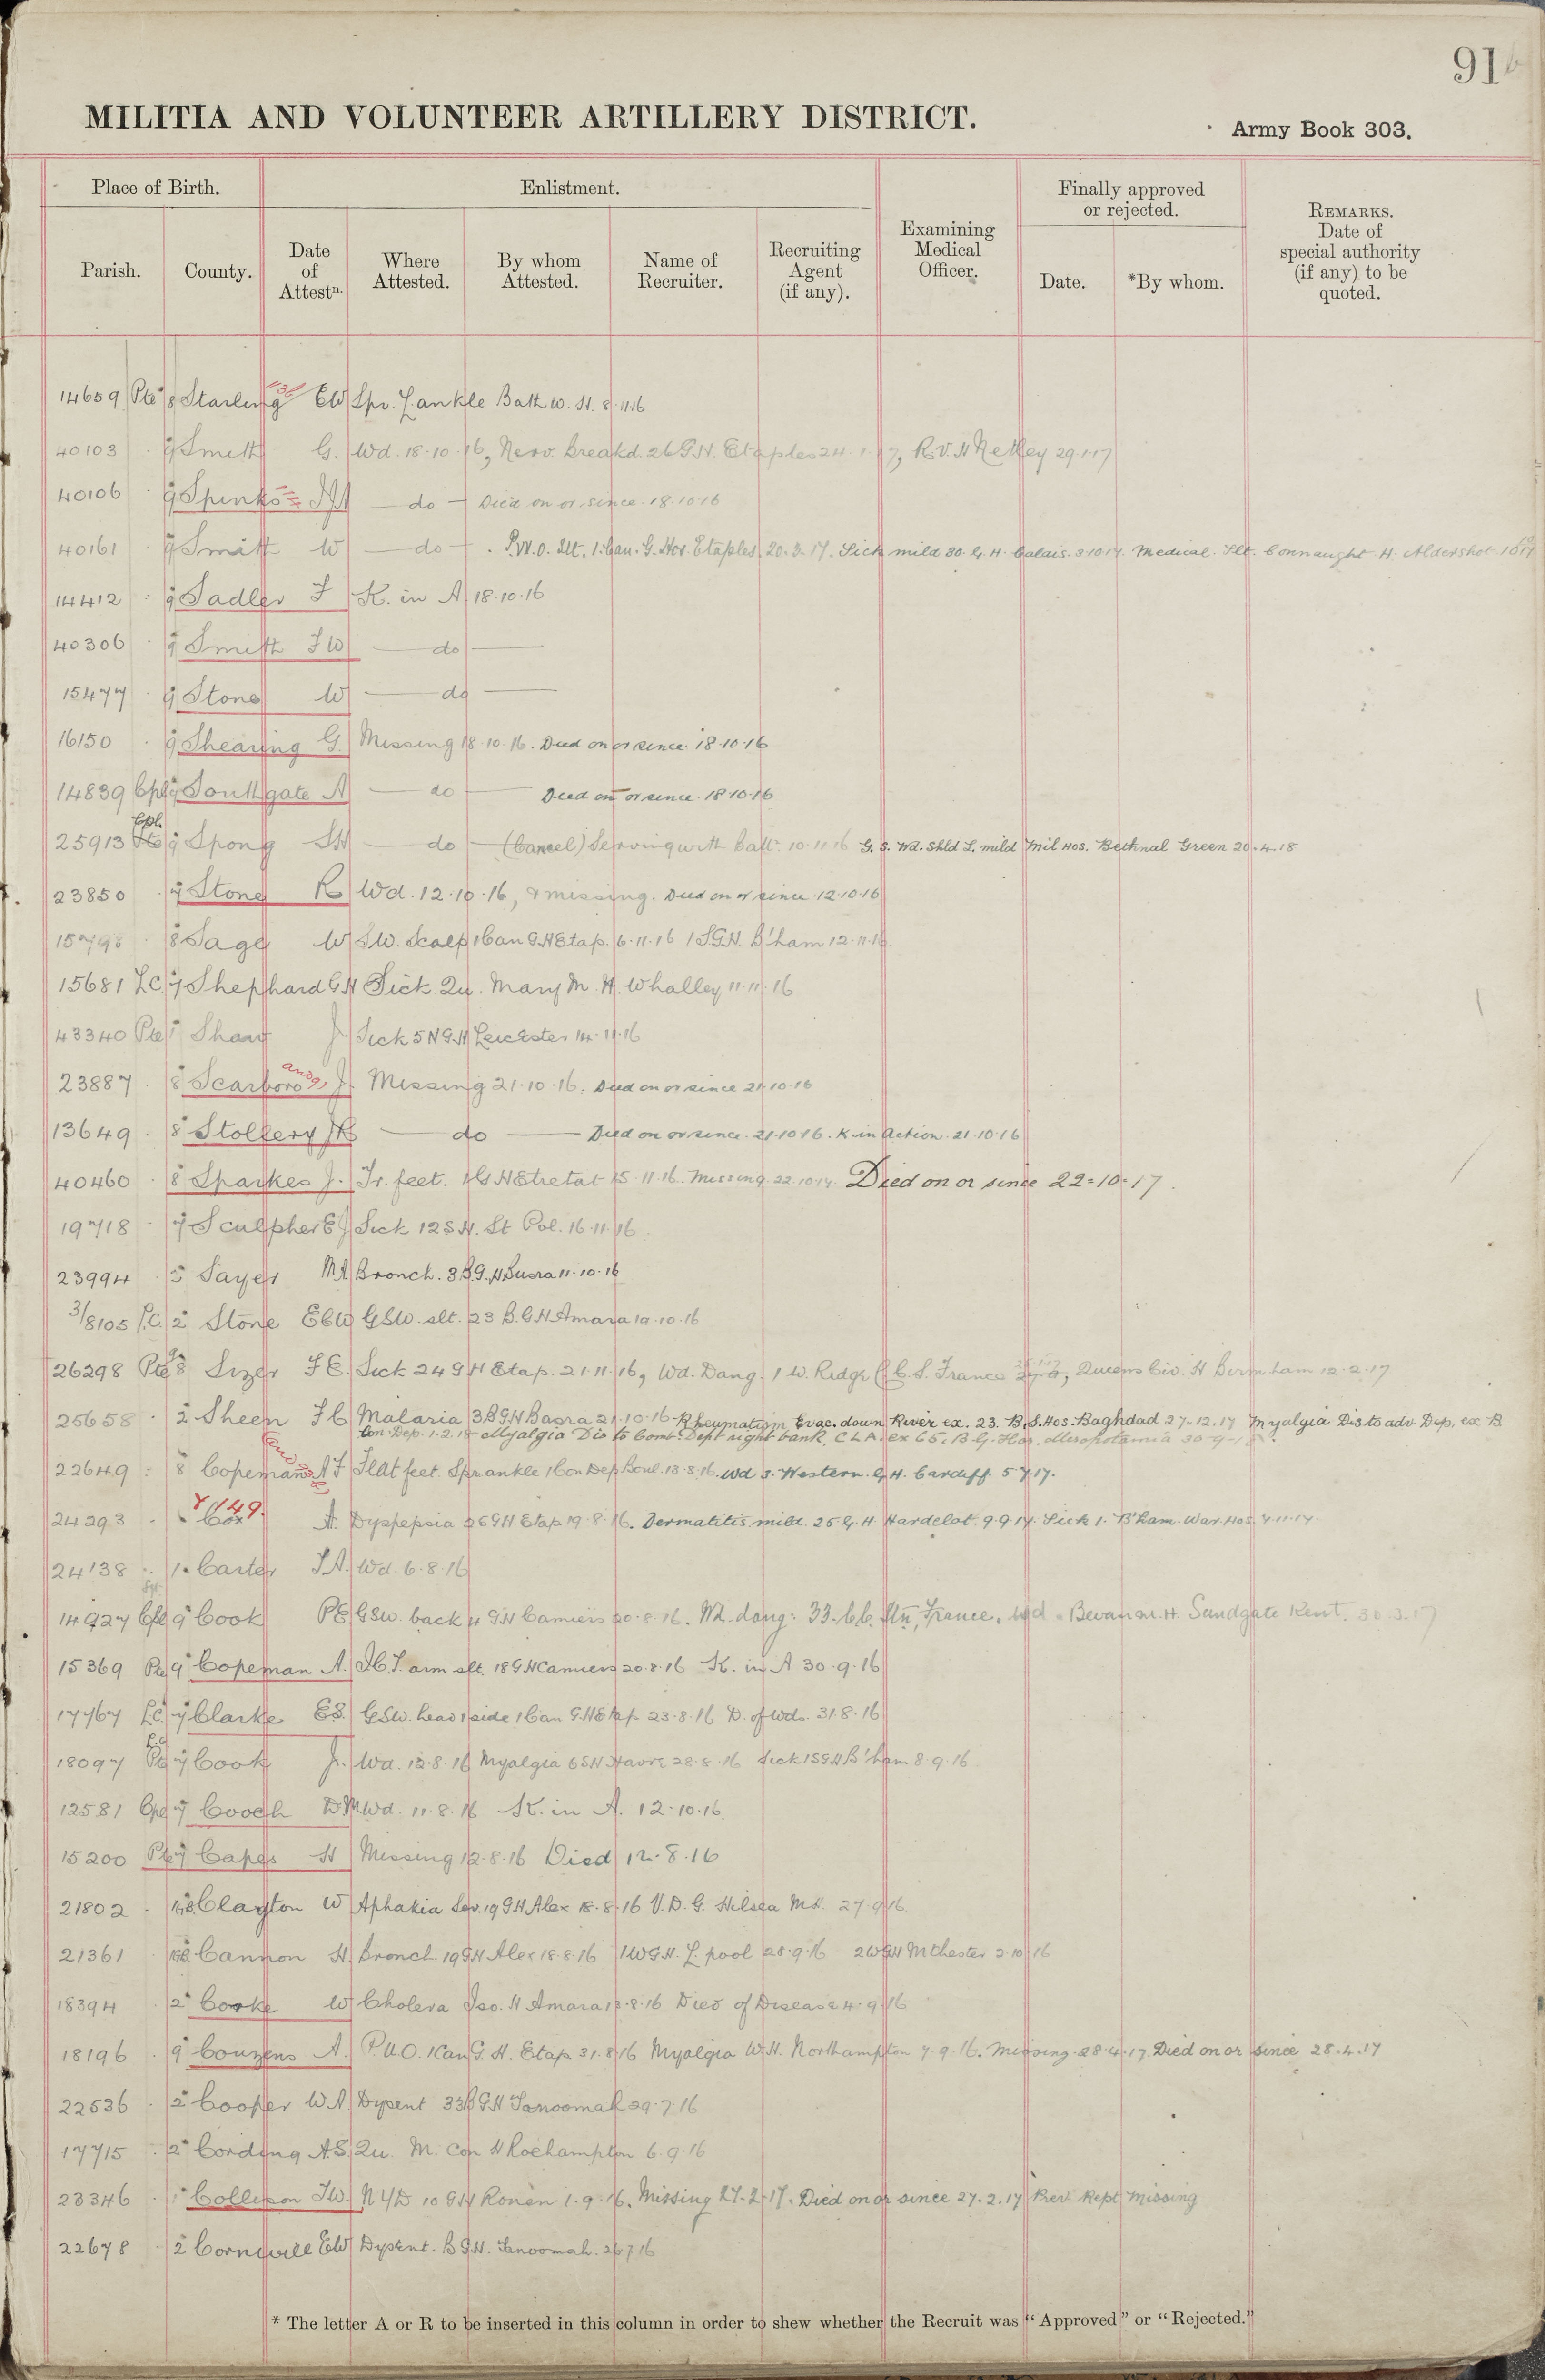 91
MILITIA AND VOLUNTEER ARTILLERY DISTRICT.
Army Book 303.
Place of Birth.
Enlistment.
Finally approved
or rejected.
Parish.
County.
Date
of
Attestn.
Where
Attested.
By whom
Attested.
Name of
Recruiter.
Recruiting
Agent
(if any).
Examining
Medical
Officer.
Date.
*By whom.
REMARKS.
Date of
special authority
(if any) to be
quoted.
14659 Pte 8 Starling EW Spr. L ankle Bath W. H. 8.11.16
40103 9 Smith G. Wd. 18.10.16, Nerv. Breakd. 26 G.H. Etaples 24.1.17, R.V.H Netley 29.1.17
40106 9 Spinks do Died on or since 18.10.16
40161 9 Smith W do P.U.O. Slt. 1. Can. G. Hos. Etaples. 20.3.17. Sick mild 30. G. H. Calais. 3.10.17. Medical. Slt. Connaught. H. Aldershot
14412 9 Sadler F K. in A 18.10.16
40306 9 Smith FW do
15477 9 Stone W do
16150 9 Shearing G. Missing 18.10.16. Died on or since 18.10.16
14839 Cpl 9 Southgate A do Died on or since 18.10.16
25913 Cpl. 9 Spong SH do (Cancel) Serving with Batt. 10.11.16 G. S. Wd. Shld L. mild Mil Hos. Bethnal Green 20.4.18
23850 7 Stone R Wd. 12.10.16, & missing. Died on or since 12.10.16
15798 8 Sage W S.W. Scalp 1 Can G.H Etap. 6.11.16 1 S.G.H. B'ham 12.11.16
15681 LC 7 Shephard GH Sick Qu. Mary M. H. Whalley 11.11.16
43340 Pte Sharp J. Sick 5 N G.H Leicester 14.11.16
23887 8 Scarboro J. Missing 21.10.16. Died on or since 21.10.16
13649 8 Stollery JR do Died on or since 21.10.16. K in Action. 21.10.16
40460 8 Sparkes J. Tr. feet. 1 G H Etretat 15.11.16. Missing 22.10.17. Died on or since 22-10-17.
19718 7 Sculpher EJ Sick 12 S.H. St Pol. 16.11.16
23994 5 Sayer MA Bronch. 3 B.G.H Busra 11.10.16
3/8105 P.C. 2 Stone ECW GSW. slt. 23 B.G.H Amara 19.10.16
26298 Pte 8 Sizer F E. Sick 24 G H Etap. 21.11.16, Wd. Dang. 1 W. Ridge C.C.S. France, Queens Civ. H Birmham 12.2.17
25658 2 Sheen F C Malaria 3 B G H Basra 21.10.16 Rheumatism Evac. down River ex. 23. B. S. Hos. Baghdad 27.12.17 Myalgia Dis to adv Dep. ex B
Con. Dep. 1.2.18 Myalgia Dis to Comb. Dept right bank. C L A. ex 65. B. G. Hos. Mesopotamia 30-9-18.
22649 8 Copeman AF Flat feet. Spr ankle 1 Con Dep Boul. 13.8.16. Wd 3. Western. G. H. Cardiff 5.7.17.
24293 Cox A. Dyspepsia 26 G H Etap 19.8.16. Dermatitis mild. 25 G. H. Hardelot. 9.9.17. Sick 1. B'ham. War. Hos. 4.11.17
24138 1 Carter J A. Wd. 6.8.16
14927 Cpl 9 Cook PE GSW. back 4 G H Camiers 20.8.16. Wd. dang: 33. C.C. Stn, France. Wd. Bevan M. H. Sandgate Kent. 30.3.17
15369 Pte 9 Copeman A. I.C.T. arm slt. 18 G H Camiers 20.8.16 K. in A 30.9.16
17767 LC 7 Clarke ES. GSW. head & side 1 Can G.H Etap 23.8.16 D. of Wds. 31.8.16
18097 Pte 7 Cook J. Wd. 12.8.16 Myalgia 6 S H Havre 28.8.16 Sick 1 S G H B'ham 8.9.16
12581 Cpl 7 Cooch DM Wd. 11.8.16 K. in A. 12.10.16.
15200 Pte 7 Capes H Missing 12.8.16 Died 12.8.16
21802 Clayton W Aphakia Sev. 19 G H Alex 18.8.16 V.D.G. Hilsea M.H. 27.9.16.
21361 Cannon H. Bronch 19 G H Alex 18.8.16 1 W G H. L. pool 28.9.16 2 W G H Mchester 2.10.16
18394 2 Cooke W Cholera Iso. H Amara 18.8.16 Died of Disease 4.9.16
18196 9 Couzens A. P.U.O. 1 Can G. H. Etap 31.8.16 Myalgia W.H. Northampton 7.9.16. Missing 28.4.17 Died on or since 28.4.17
22536 2 Cooper W.A. Dysent 33 B G H Tanoomah 29.7.16
17715 2 Cording A.S. Qu. M. Con H Roehampton 6.9.16
23346 Collison JW. N Y D 10 G H Rouen 1.9.16. Missing 27.2.17. Died on or since 27.2.17 Prev. Rept Missing
22678 2 Cornwell EW Dysent. B G.H. Tanoomah. 26.7.16
* The letter A or R to be inserted in this column in order to shew whether the Recruit was "Approved" or "Rejected."